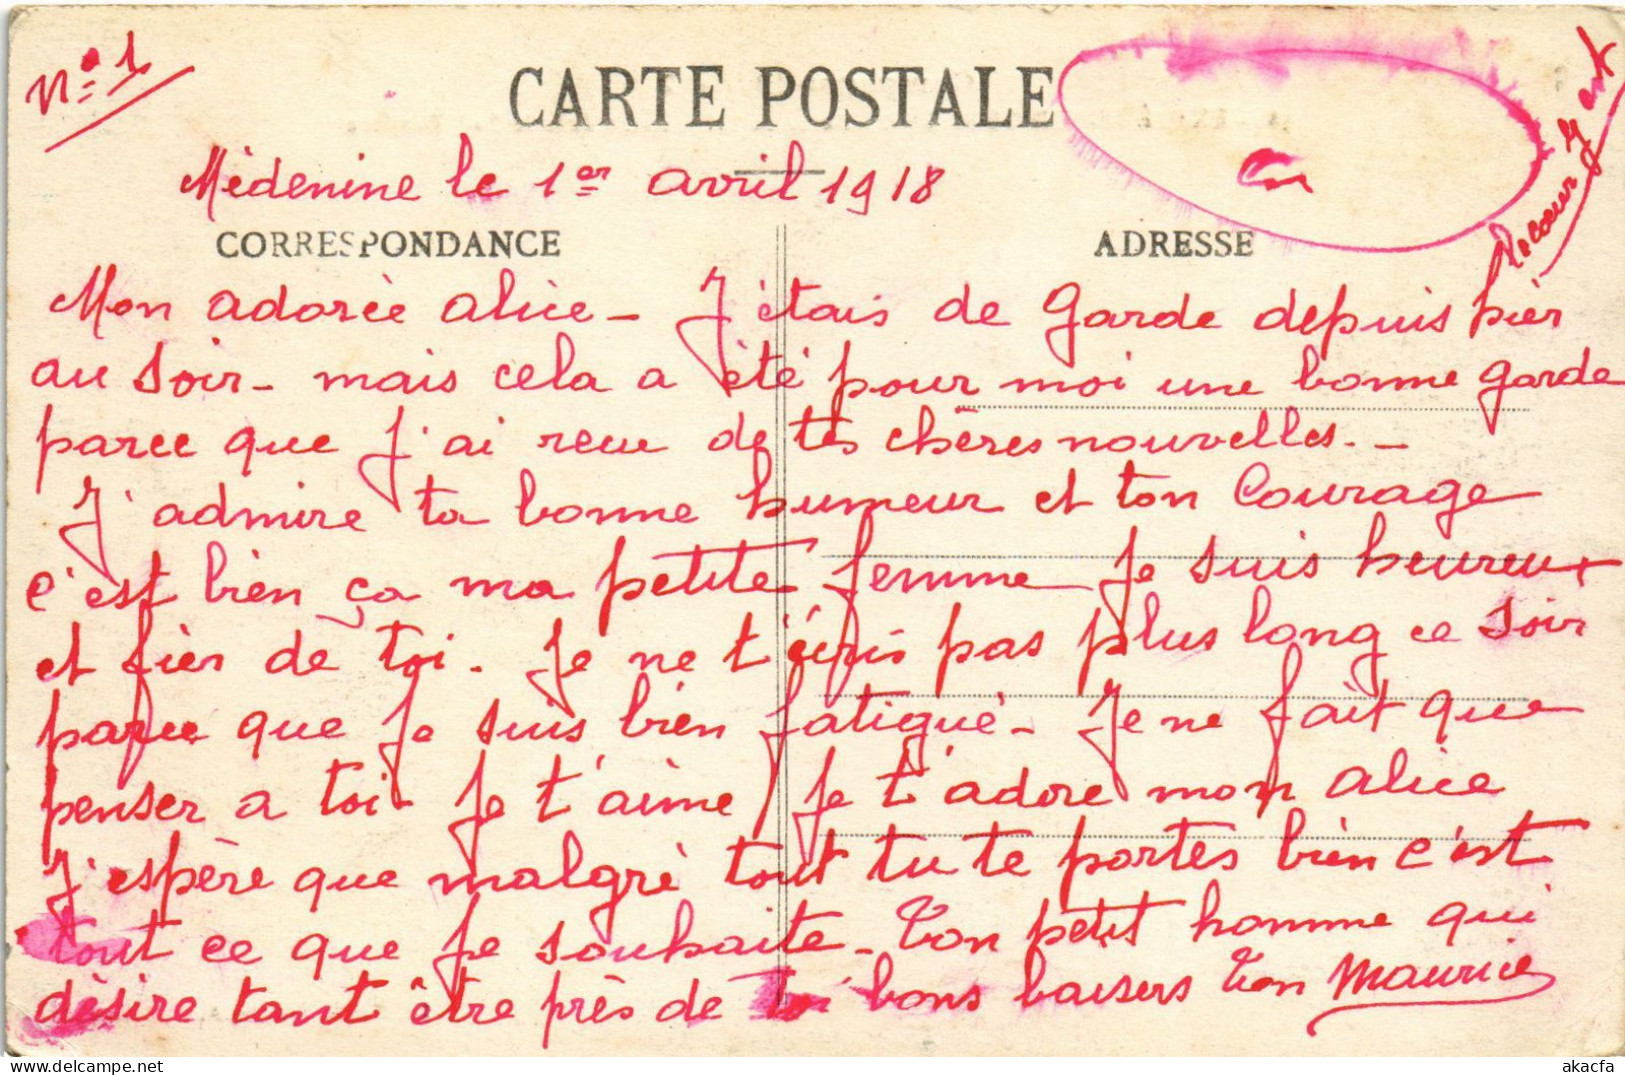 N° 1
CARTE POSTALE
Médenine le 1er avril 1918
CORRESPONDANCE
ADRESSE
Mon adorée alice - J'étais de garde depuis hièr
au soir - mais cela a été pour moi une bonne garde
parce que j'ai reçu de tes chères nouvelles. -
J'admire ta bonne humeur et ton Courage
c'est bien ça ma petite femme Je suis heureux
et fièr de toi. Je ne t'écris pas plus long ce soir
parce que je suis bien fatigué - Je ne fait que
penser a toi - Je t'aime / Je t'adore mon alice
J'espère que malgrè tout tu te portes bien c'est
tout ce que je souhaite - Ton petit homme qui
désire tant être près de toi bons baisers Ton Maurice
akacfa